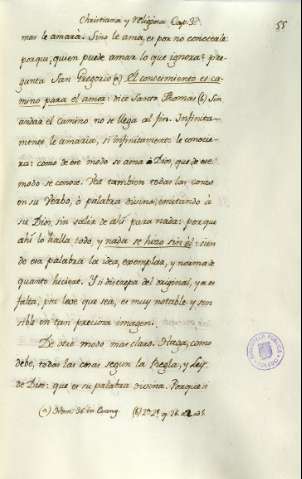 Christiana y religiosa Cap. V. 55
mas le amarà. Sino le ama, es por no conocerle
porque, quien puede amar lo que ignora? pre-
gunta San Gregorio (a) El conocimiento es ca-
mino para el amor: dice Santo Thomas (b) Sin
andar el camino no se llega al fin. Infinita-
mente le amaria, si infinitamente le conocie-
ra: como de ese modo se ama à Dios, que de ese
modo se conoce. Vea tambien todas las cosas
en su Verbo, ò palabra divina, imitando a
su Dios, sin salir de ahì para nada: porque
ahì lo halla todo, y nada se hizo sin èl: sien-
do esa palabra la idea, exemplar, y norma de
quanto hiciere. Y si discrepa del original, ya es
falta, por leve que sea, es muy notable y sen-
sible en tan preciosa imagen.
De otro modo mas claro. Haga, como
debe, todas las cosas segun la Regla, y Ley
de Dios: que es su palabra divina. Porque si
(a) Hom. 36 in Evang. (b)